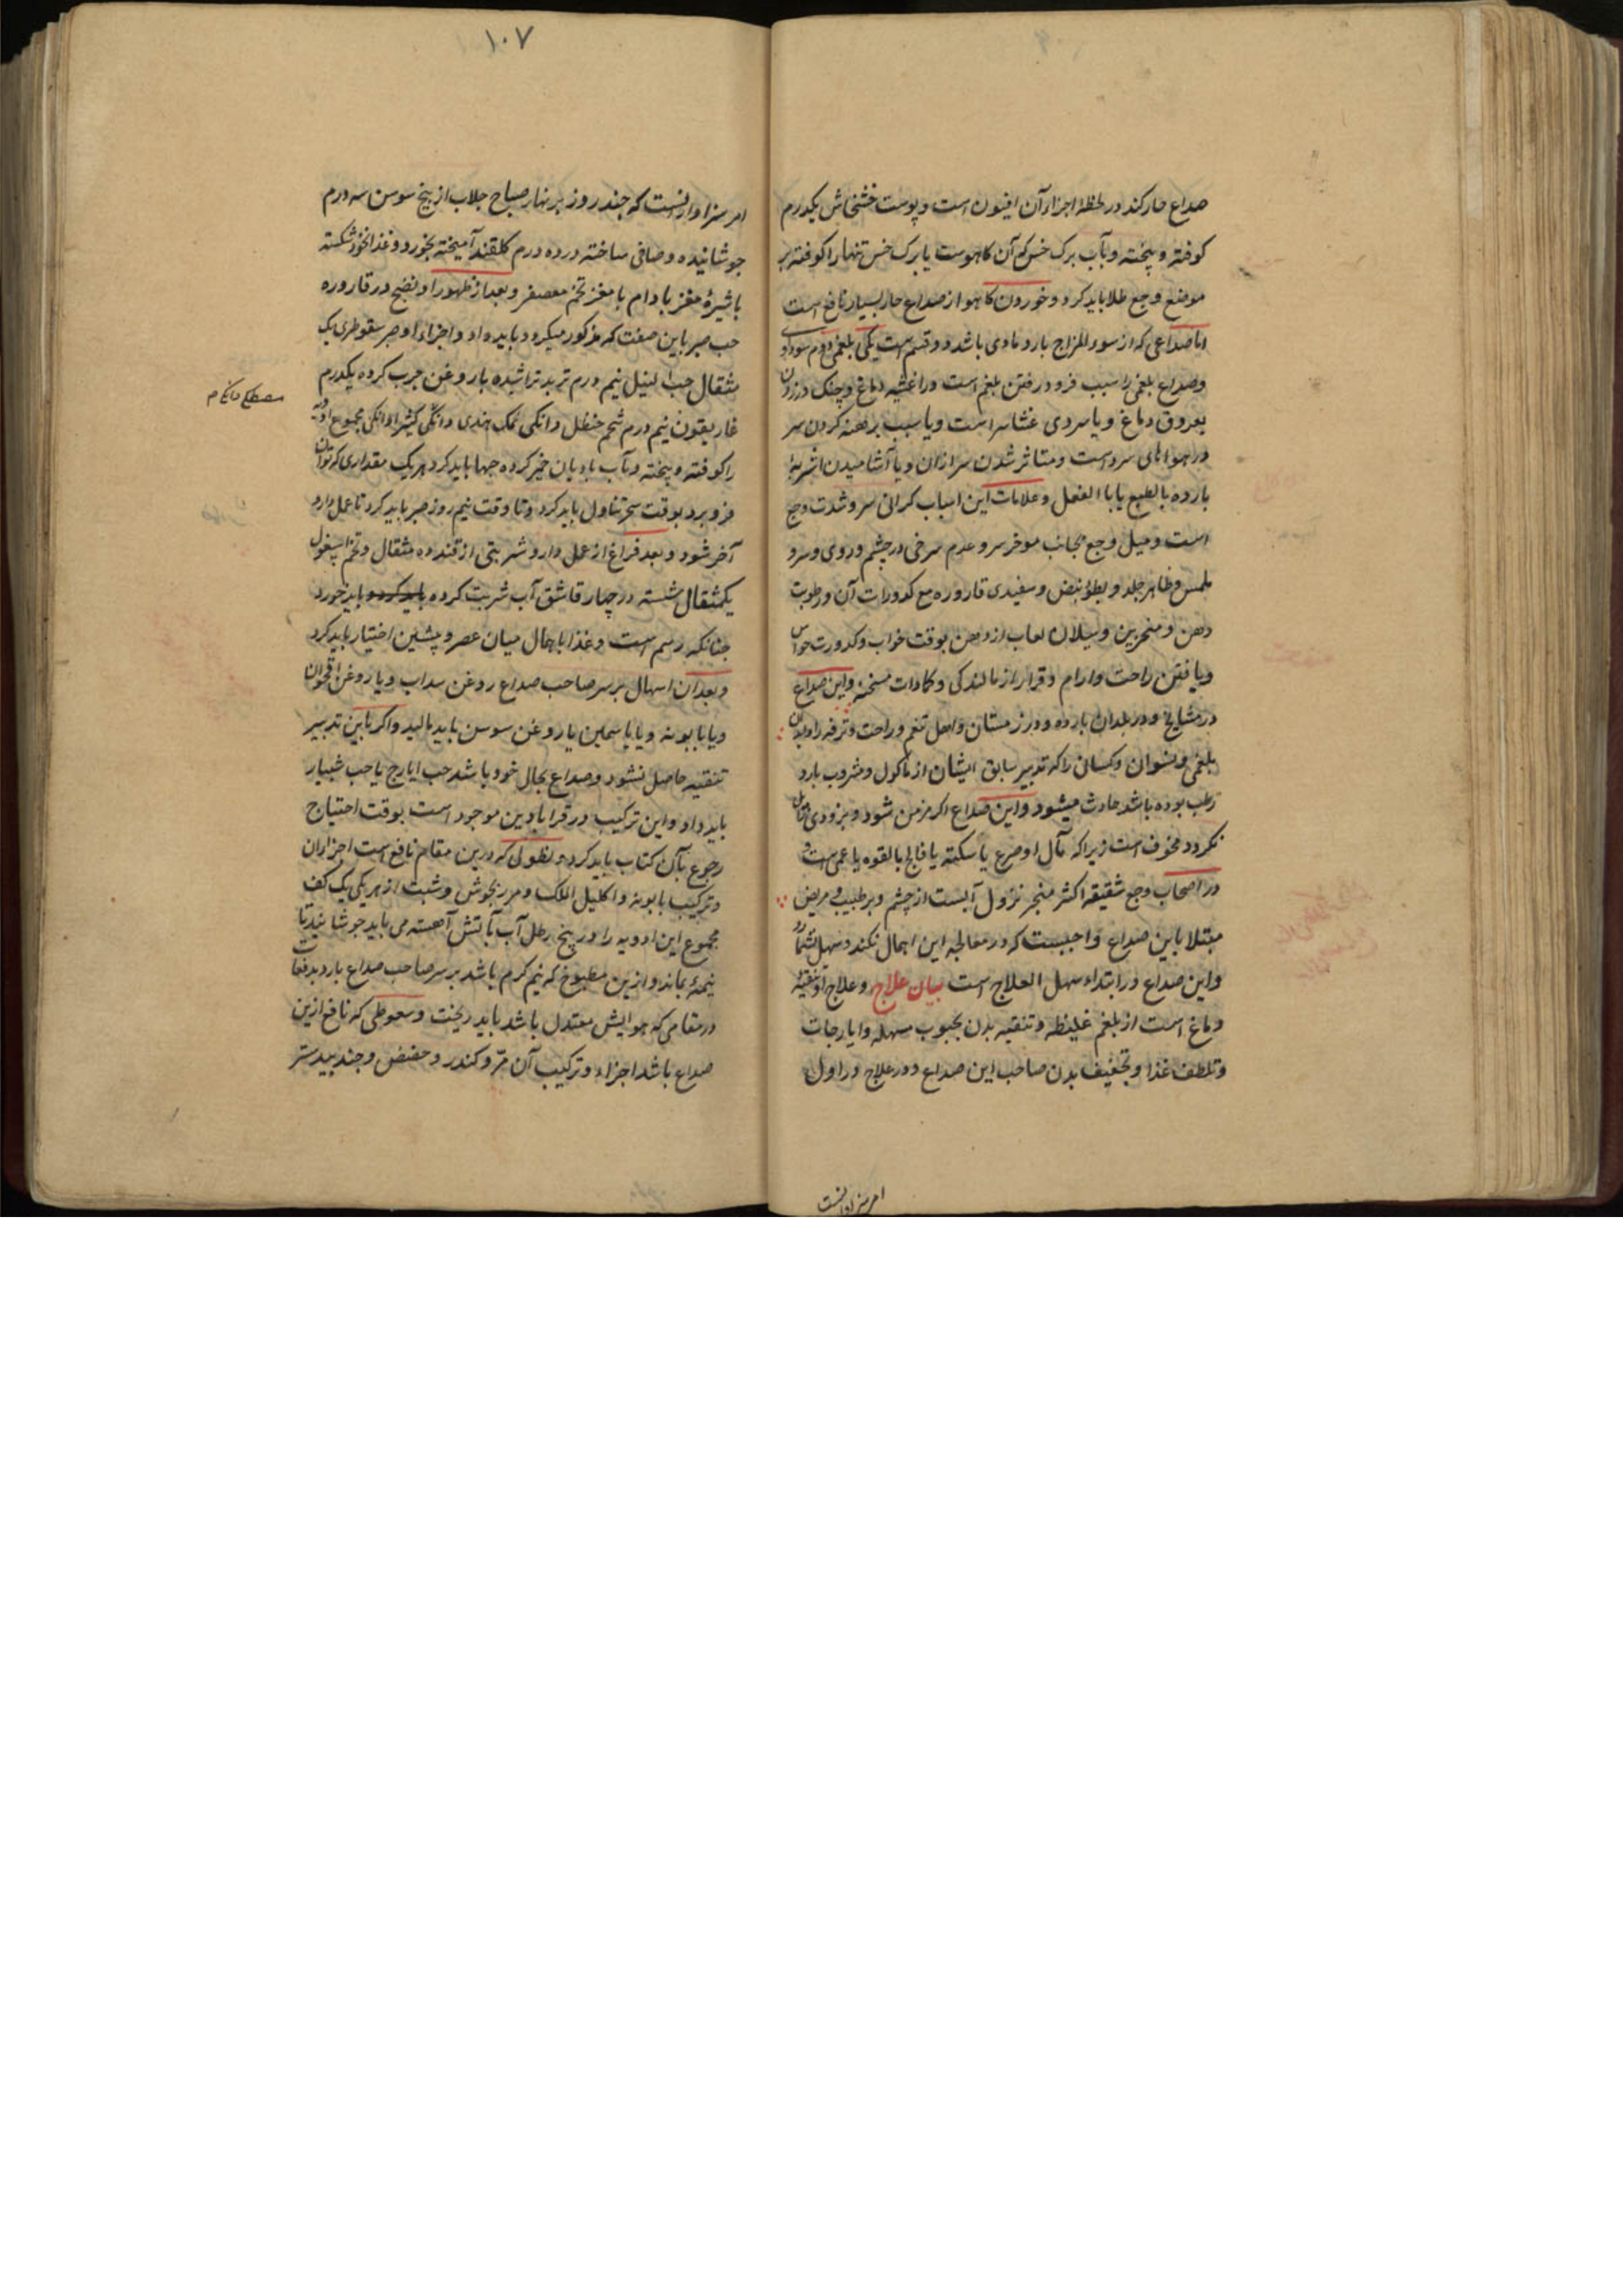 صداع حار کند در لحظهٔ اجزاء آن افیون است و پوست خشخاش یکدرم
کوفته و پخته و بآب برک خس که آن کاهوست یا برک خس تنها را کوفته بر
موضع وجع طلا باید کرد و خوردن کاهو از صداع حار بسیار نافع است
اما صداعی که از سوء المزاج بارد مادی باشد دو قسم است یکی بلغمی دوم سوداوی
و صداع بلغمی را سبب فرو رفتن بلغم است در اغشیه دماغ
بعروق دماغ و یا سردی غشا سر است و یا سبب برهنه کردن سر
در هواهای سرد است و متاثر شدن سر ازان و یا آشامیدن اشربهٔ
بارده بالطبع یا بالفعل و علامات این اسباب کرانی سر و شدت وجع
است و میل وجع بجانب موخر سر و عدم سرخی در چشم و روی و سردی
ملمس ظاهر جلد و بطؤ نبض و سفیدی قاروره مع کدورات آن و رطوبت
دهن و منخرین و سیلان لعاب از دهن بوقت خواب و کدورت حواس
و یافتن راحت و ارام و قرار از مالندکی و کمادات مسخنه و این صداع
در مشایخ و در بلدان بارده و در زمستان و اهل تنعم و راحت و ترفه را و ابدان
بلغمی و نسوان و کسانی را که تدبیر سابق ایشان از ماکول و مشروب بارد
رطب بوده باشد حادث میشود و این صداع اکر مزمن شود و بزودی زائل
نکردد مخوف است زیرا که مآل او صرع یا سکته یا فالج یا لقوه یا عمی است و
در اصحاب وجع شقیقه اکثر منجر نزول آبست از چشم و بر طبیب و مریض
مبتلا باین صداع واجبست که در معالجه این اهمال نکند و سهل نشمارد
و این صداع در ابتداء سهل العلاج است بیان علاج و علاج او تنقیهٔ
دماغ است از بلغم غلیظه و تنقیه بدن بحبوب مسهله و ایارجات
و تلطف غذا و تخفیف بدن صاحب این صداع و در علاج در اول
امر سزاوار آنست
۱۰۷
امر سزاوار آنست که چند روز بر نهار صباح جلاب از بیخ سوسن سه درم
جوشانیده و صافی ساخته در ده درم کلقند آمیخته بخورد و غذا نخود شکسته
با شیرهٔ مغز بادام با مغز تخم معصفر و بعد از ظهور او نضج در قاروره
حب صبر باین صفت که مذکور میکردد باید داد و اجزاء او صبر سقوطری یک
مثقال حب النیل نیم درم تربد تراشیده بار وغن چرب کرده یکدرم
غاریقون نیم درم شحم حنظل دانکی نمک هندی دانکی کثیرا دانکی مجموع ادویه
را کوفته و پخته و بآب بادیان خمیر کرده حبها باید کرد هر یک مقداری که توان
فرو برد بوقت سحر تناول باید کرد و تا وقت نیم روز صبر باید کرد تا عمل دارو
آخر شود و بعد فراغ از عمل دارو شربتی از قند ده مثقال و تخم اسپغول
یکمثقال شسته در چهار قاشق آب شربت کرده باید کرد و باید خورد
چنانکه رسم است و غذا بهر حال میان عصر و پیشین اختیار باید کرد
و بعد ان اسهال بر سر صاحب صداع روغن سداب و یا روغن اقحوان
و یا بابونه و یا یاسمین یا روغن سوسن باید مالید و اکر باین تدبیر
تنقیه حاصل نشود و صداع بحال خود باشد حب ایارج یا حب شبیار
باید داد و این ترکیب در قرابادین موجود است بوقت احتیاج
رجوع بآن کتاب باید کرد و نطولی که درین مقام نافع است اجزاء آن
و ترکیب بابونه و اکلیل الملک و مرزنجوش و شبت از هر یکی یک کف
مجموع این ادویه را در پنج رطل آب بآتش آهسته می باید جوشانید تا
نیمهٔ بماند و ازین مطبوخ که نیم کرم باشد بر سر صاحب صداع بارد بدفعات
در مقامی که هوایش معتدل باشد باید ریخت و سعوطی که نافع ازین
صداع باشد اجزاء و ترکیب آن مر و کندر و حضض و جند بیدستر